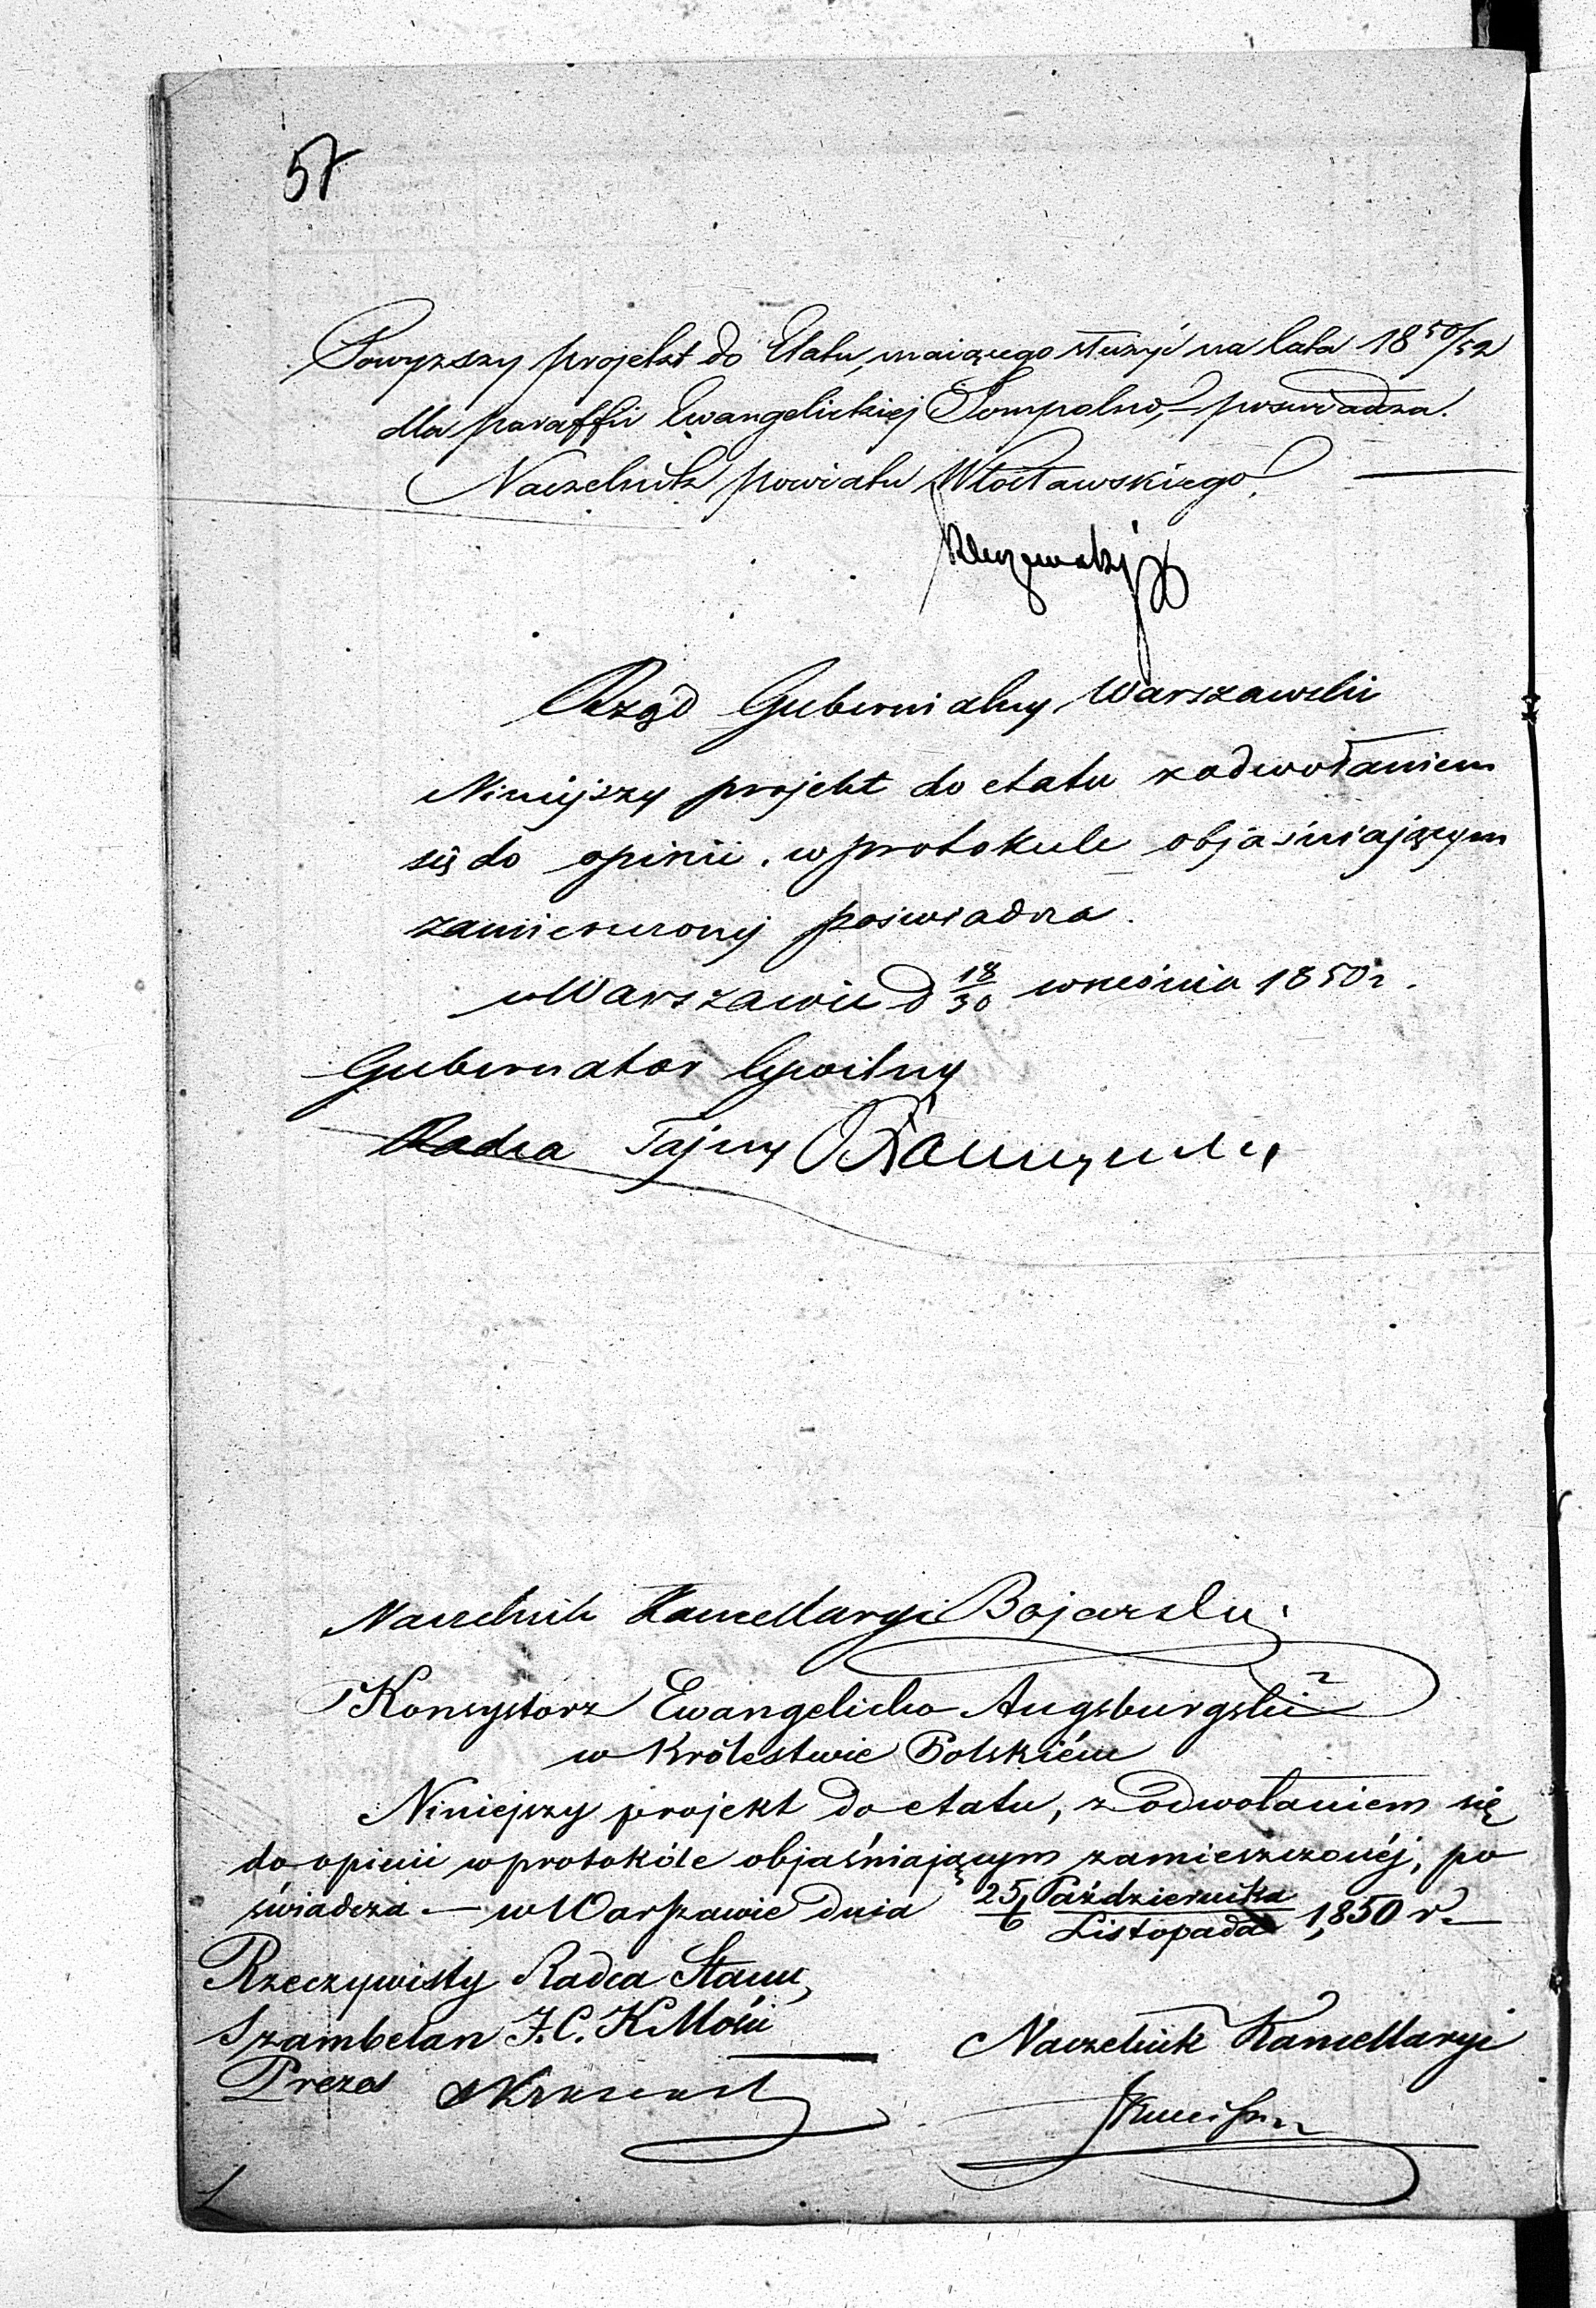 57
Powyzszy projekt do Etatu, maiącego służyć na lata 18 50/52
dla paraffii Ewangelickiej Sompolno, poswiadcza.
Naczelnik powiatu Włocławskiego
Rząd Gubernialny Warszawski
Niniejszy projekt do etatu z odwołaniem
się do opinii w protokule objaśniającym
zamieszczonej poświadcza.
w Warszawie d 18/30 września 1850 r.
Gubernator Cywilny
Radca Tajny
Naczelnik Kancellaryi Bojarski
Konsystorz Ewangelicko Augsburgski
w Królestwie Polskiém
Niniejszy projekt do etatu, z odwołaniem się
do opinii w protokóle objaśniającym zamieszczonéj, po
świadcza — w Warszawie dnia 25/6 Października/Listopada 1850 r. —
Rzeczywisty Radca Stanu,
Szambelan J. C. K Mości
Prezes
Naczelnik Kancellaryi